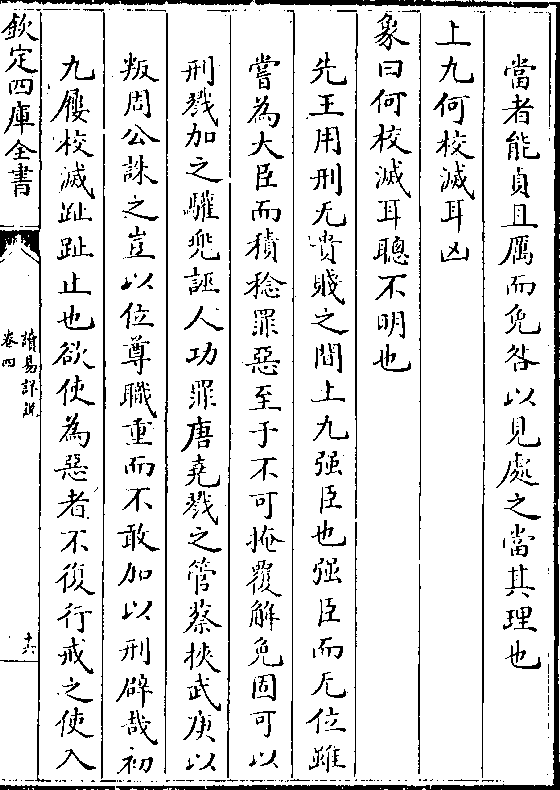 當者能貞且厲而免咎以見處之當其理也
上九何校滅耳凶
象曰何校滅耳聰不明也
先王用刑无貴賤之間上九强臣也强臣而无位雖
嘗為大臣而積稔罪惡至于不可掩覆解免固可以
刑戮加之驩兜誣人功罪唐堯戮之管蔡挾武庚以
叛周公誅之豈以位尊職重而不敢加以刑辟哉初
九屨校滅趾趾止也欲使為惡者不復行戒之使入
欽定四庫全書
讀易詳説
卷四
十六